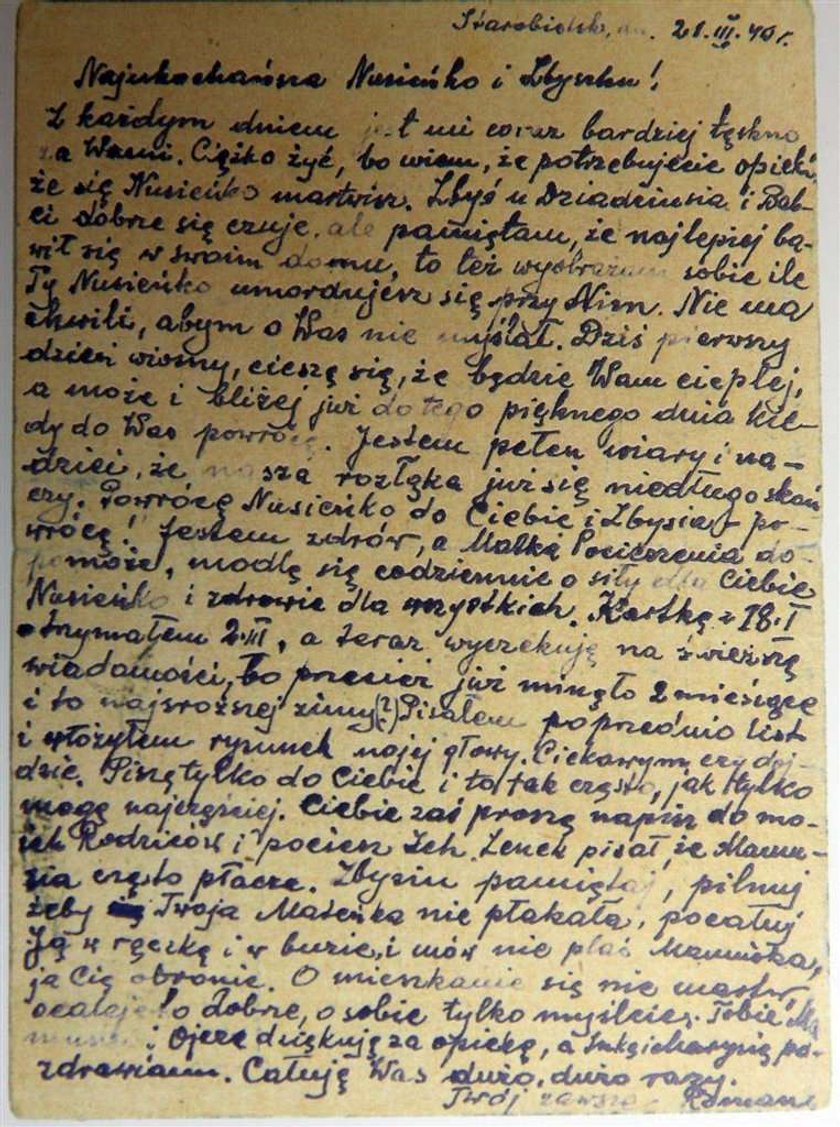 Starobielsk, dn. 21.III.40 r.
Najukochańsza Nusieńko i Zbyszku!
Z każdym dniem jest mi coraz bardziej tęskno
za Wami. Ciężko żyć, bo wiem, że potrzebujecie opieki,
że się Nusieńko martwisz. Zbyś u Dziadziusia i Bab-
ci dobrze się czuje, ale pamiętam, że najlepiej ba-
wił się w swoim domu, to też wyobrażam sobie ile
Ty Nusieńko umordujesz się przy Nim. Nie ma
chwili, abym o Was nie myślał. Dziś pierwszy
dzień wiosny, cieszę się, że będzie Wam cieplej,
a może i bliżej już do tego pięknego dnia kie-
dy do Was powrócę. Jestem pełen wiary i na-
dziei, że nasza rozłąka już się niedługo skoń
czy. Powrócę Nusieńko do Ciebie i Zbysia, po-
wrócę! Jestem zdrów, a Matka Pocieszenia do-
pomoże, modlę się codziennie o siły dla Ciebie
Nusieńko i zdrowie dla wszystkich. Kartkę z 18.I
otrzymałem 2.III, a teraz wyczekuję na świeższą
wiadomość, bo przecież już minęło 2 miesiące
i to najsroższej zimy(?) Pisałem poprzednio list
i włożyłem rysunek mojej głowy. Ciekawym czy doj-
dzie. Piszę tylko do Ciebie i to tak często, jak tylko
mogę najczęściej. Ciebie zaś proszę napisz do mo-
ich Rodziców i pociesz Ich. Zenek pisał, że Mamu-
sia często płacze. Zbysiu pamiętaj, pilnuj
żeby Twoja Mateńka nie płakała, pocałuj
Ją w rączkę i w buzię, i mów nie płacz Mamuśka,
ja Cię obronię. O mieszkanie się nie martw,
ocaleje to dobrze, o sobie tylko myślcie. Tobie, Ma
musi i Ojcze dziękuję za opiekę, a po-
zdrawiam. Całuję Was dużo, dużo razy.
Twój zawsze Roman